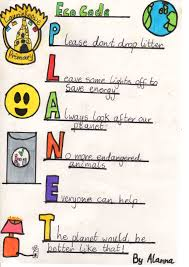 Primary
Eco Code
PLANET
Please don't drop litter
Leave some lights off to
save energy
Always look after our
planet
No more endangered
animals
Everyone can help
The planet would be
better like that!
By Alanna